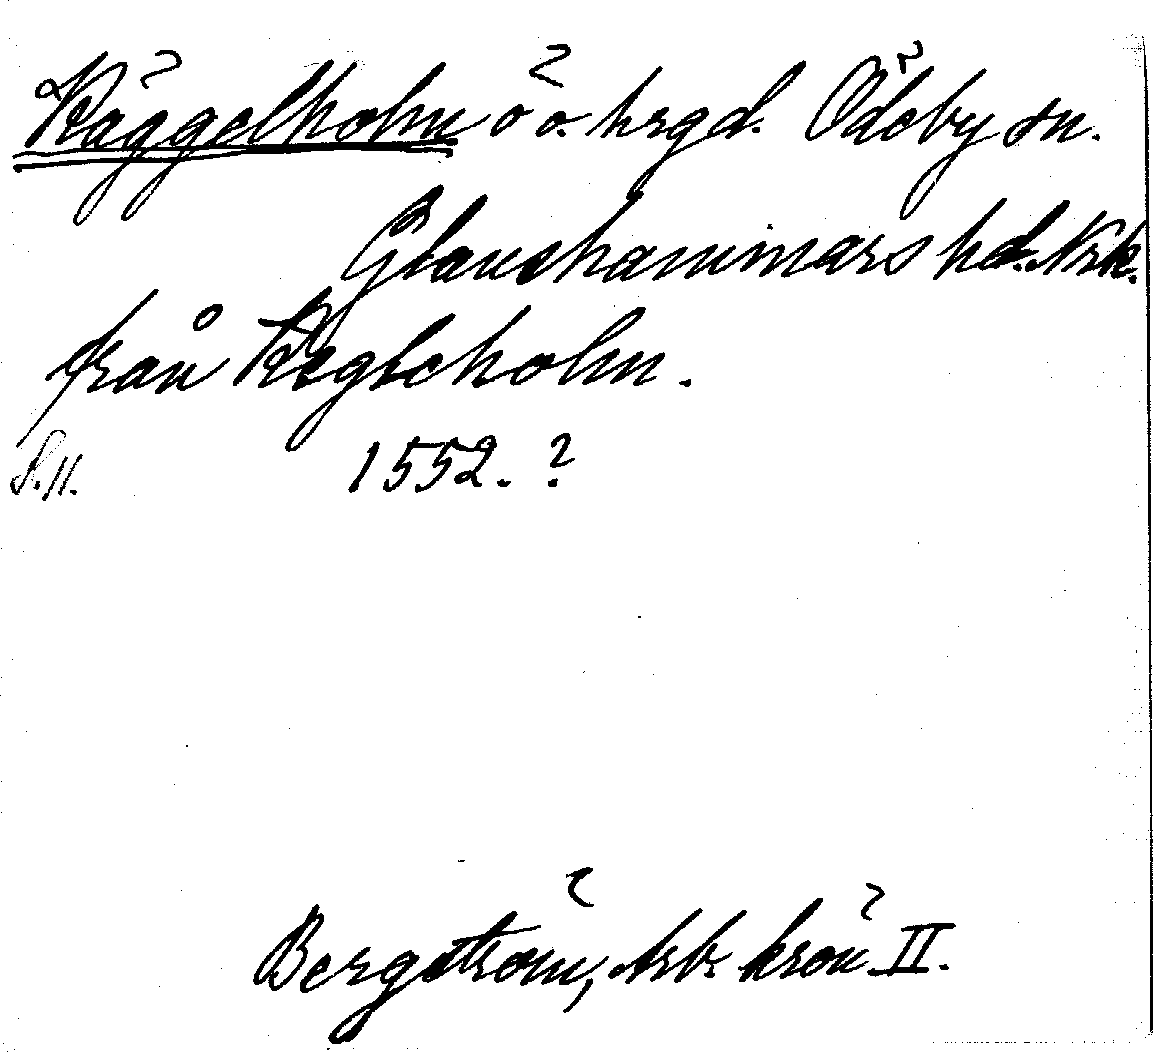 Käggelholm ö o. hrgd. Ödeby sn.
Glanshammars hd. Nrk.
från Kegleholm.
S. 11. 1552. ?
Bergström, Arb. krön. II.